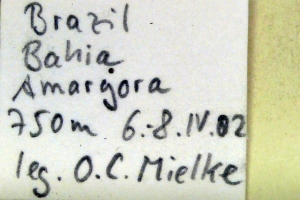 Brazil
Bahia
Amargora
750m 6.-8.IV.02
leg. O.C. Mielke